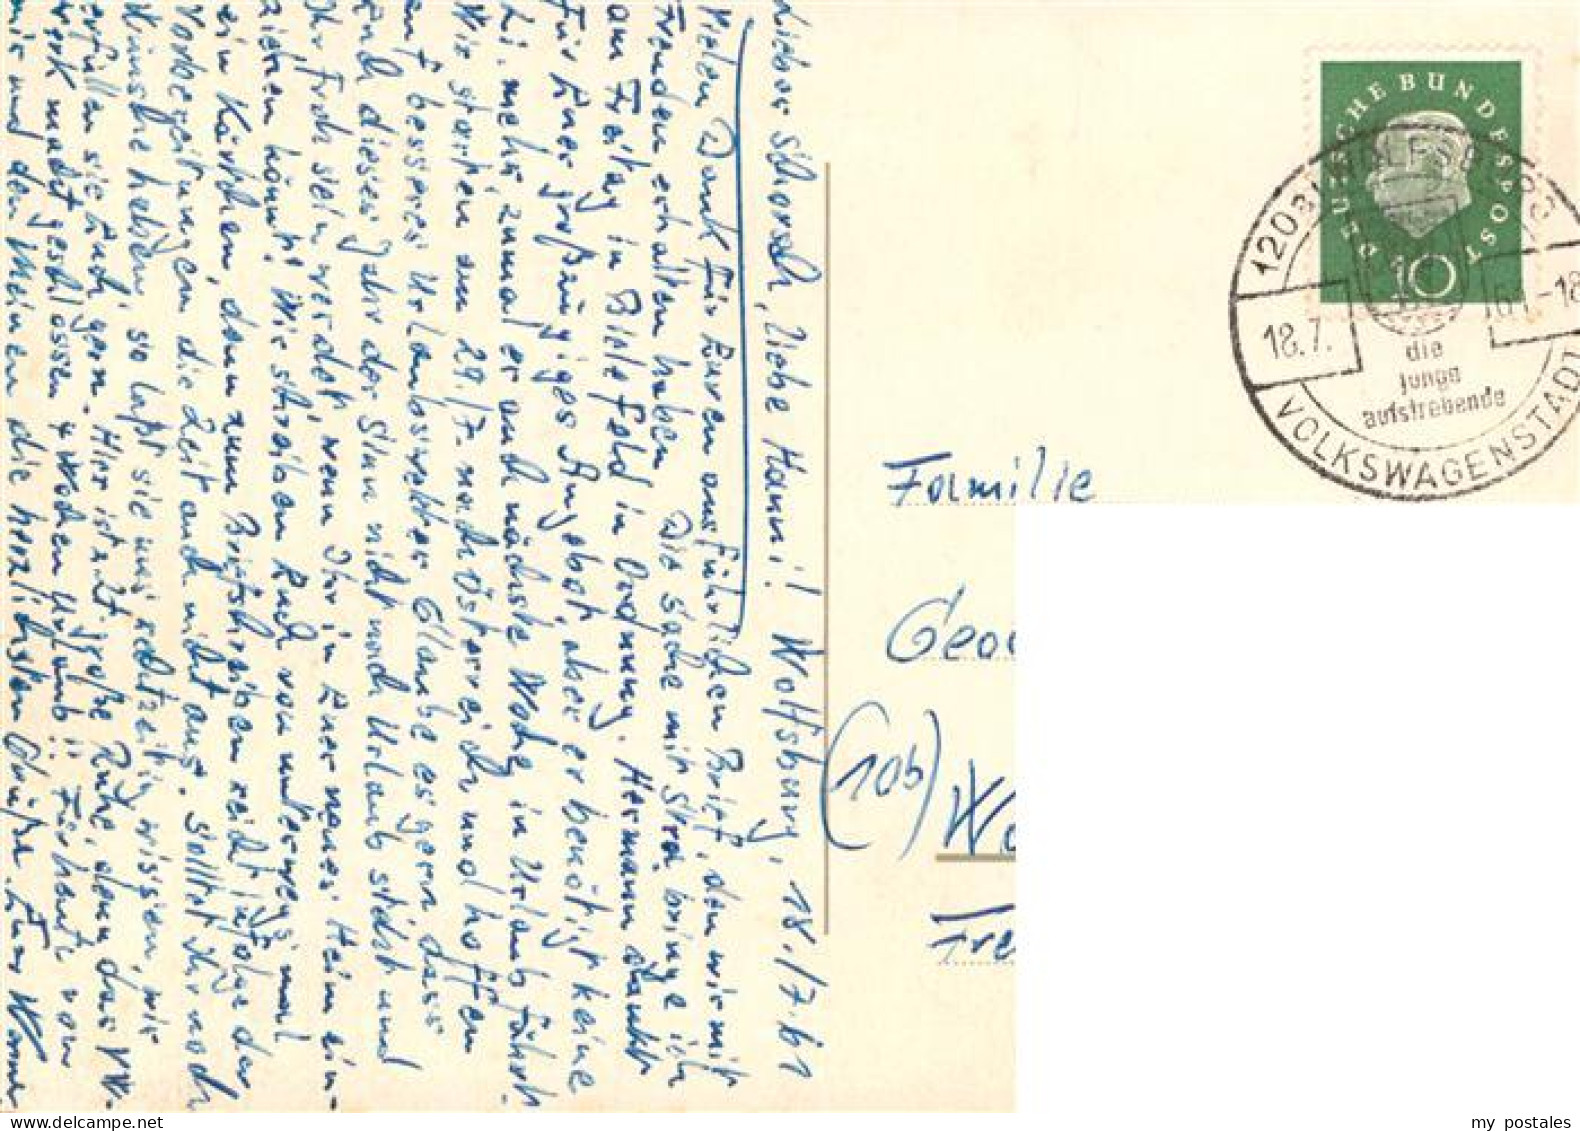 Lieber Schorsch, liebe Hanni! Wolfsburg, 18./7.61
Vielen Dank für Euren ausführlichen Brief, den wir mit
Freuden erhalten haben. Die Sache mit bringe ich
am Freitag in Bielefeld in Ordnung. Hermann dankt
für Euer großzügiges Angebot, aber er benötigt keine
Li. mehr, zumal er auch nächste Woche in Urlaub fährt.
Wir starten am 29./7. nach Österreich und hoffen
auf besseres Urlaubswetter. Glaube es gern dass
Euch dieses Jahr der Sinn nicht nach Urlaub steht und
Ihr froh sein werdet, wenn Ihr in Euer neues Heim ein-
ziehen könnt! Wir schreiben Euch von unterwegs mal
ein Kärtchen, denn zum Briefschreiben reicht infolge der
Vorbereitungen die Zeit auch nicht aus. Solltet Ihr noch
Wünsche haben, so laßt sie uns rechtzeitig wissen, wir
erfüllen sie Euch gern. Hier ist z.Zt. große Ruhe, denn das VW-
Werk macht geschlossen 4 Wochen Urlaub!! Für heute von
mir und den Meinen die herzlichsten Grüße. Euer Werner
DEUTSCHE BUNDESPOST
10
18.7.
61-18
die
junge
aufstrebende
VOLKSWAGENSTADT
Familie
Geor
(10b)
Fre
my postales